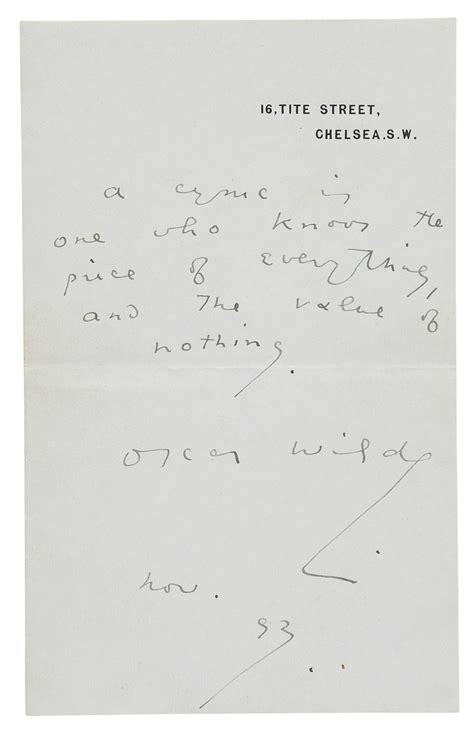 16, TITE STREET,
CHELSEA. S.W.
a cynic is
one who knows the
price of everything,
and the value of
nothing.
Oscar Wilde
Nov.
93